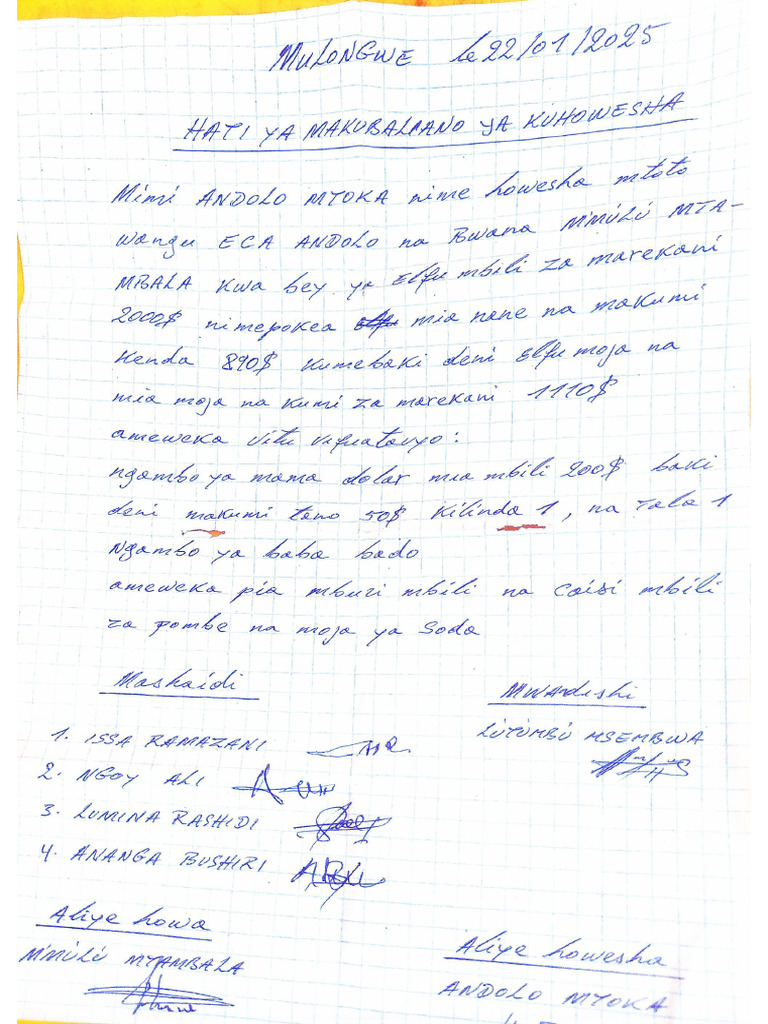 MULONGWE le 22/01/2025
HATI YA MAKUBALIANO YA KUHOWESHA
Mimi ANDOLO MTOKA nime howesha mtoto
wangu ECA ANDOLO na Bwana MIMULU MTA-
MBALA Kwa bey ya Elfu mbili za marekani
2000$ nimepokea mia nane na makumi
Kenda 890$ kumebaki deni Elfu moja na
mia moja na kumi za marekani 1110$
ameweka vitu vifuatavyo:
ngambo ya mama dolar mia mbili 200$ baki
deni makumi tano 50$ Kilinda 1, na Tala 1
Ngambo ya baba bado
ameweka pia mbuzi mbili na Caisi mbili
za pombe na moja ya Soda
Mashaidi
Mwandishi
1. ISSA RAMAZANI
LUTUMBU MSEMBWA
2. NGOY ALI
3. LUMINA RASHIDI
4. ANANGA BUSHIRI
Aliye howa
MIMULU MTAMBALA
Aliye howesha
ANDOLO MTOKA